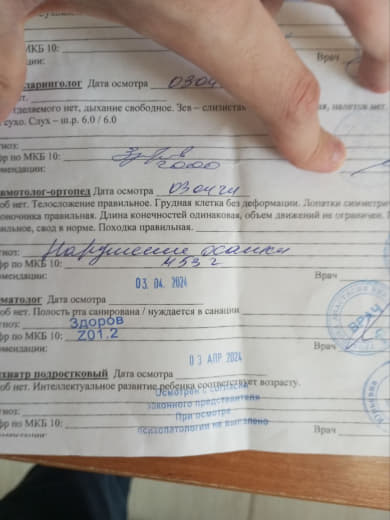 МКБ 10:
Врач
ации:
ларинголог Дата осмотра 0304
тделяемого нет, дыхание свободное. Зев – слизистая налетов нет.
сухо. Слух – ш.р. 6.0 / 6.0
гноз:
фр по МКБ 10: Z000
мендации:
вмотолог-ортопед Дата осмотра 030424
об нет. Телосложение правильное. Грудная клетка без деформации. Лопатки симметри
оночника правильная. Длина конечностей одинаковая, объем движений не ограничен.
вильное, свод в норме. Походка правильная.
Нарушение осанки
фр по МКБ 10:
мендации: 03. 04. 2024 Врач
матолог Дата осмотра
об нет. Полость рта санирована / нуждается в санации
гноз: Здоров
фр по МКБ 10: Z01.2
мендации: 03 АПР 2024 Врач
ихиатр подростковый Дата осмотра
об нет. Интеллектуальное развитие ребенка соответствует возрасту.
Осмотрен с согласия
законного представителя
гноз: При осмотре
фр по МКБ 10: психопатологии не выявлено Врач
ВРАЧ